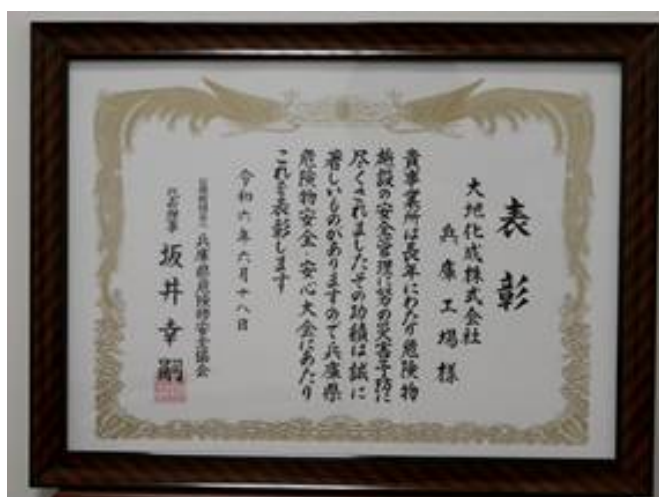 表彰
大地化成株式会社
兵庫工場様
貴事業所は長年にわたり危険物
施設の安全管理に努め災害予防に
尽くされましたその功績は誠に
著しいものがありますので兵庫県
危険物安全・安心大会にあたり
これを表彰します
令和六年六月十八日
兵庫県危険物安全協会
代表理事 坂井幸嗣